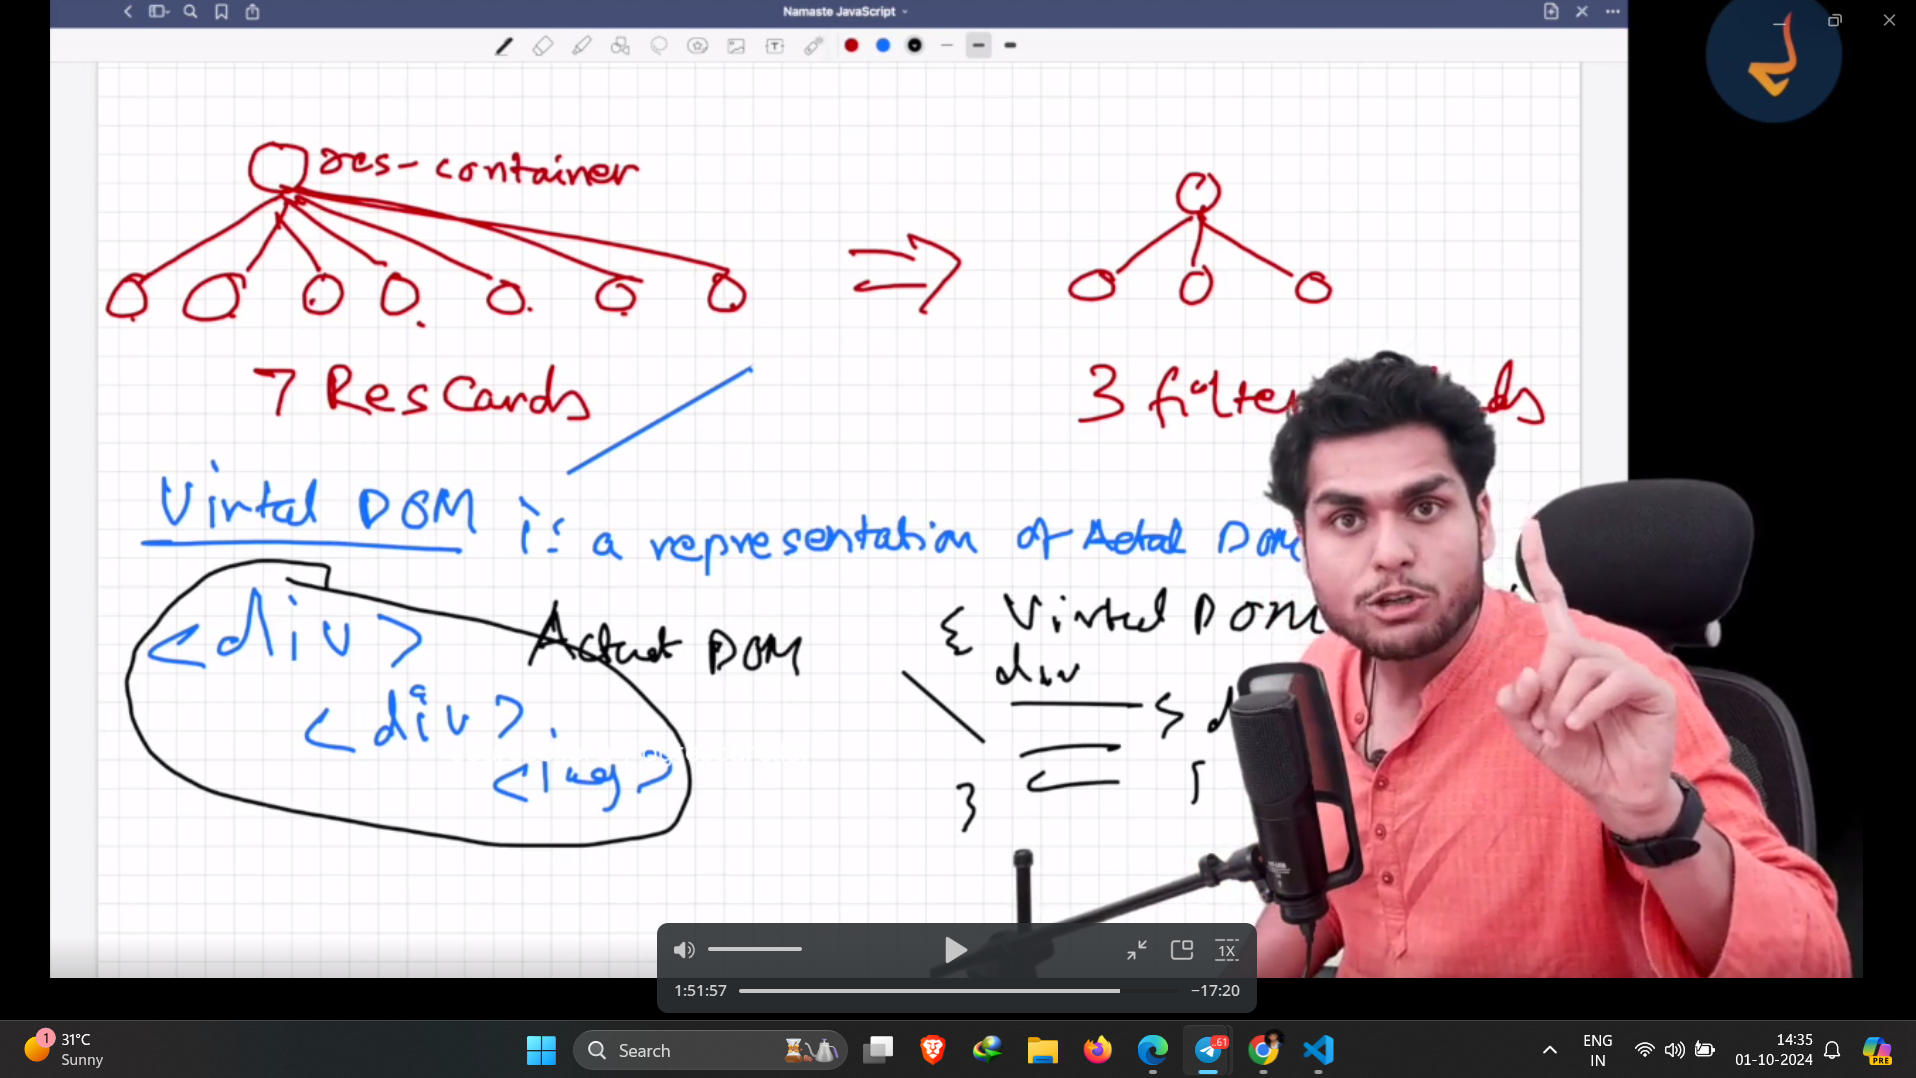 Namaste JavaScript
res-container
7 ResCards
3 filter
Virtal DOM is a representation of Actal DOM
<div>
Actual DOM
{ Virtual DOM
div
<div>
<img>
}
1X
1:51:57
−17:20
1
31°C
Sunny
Search
61
ENG
IN
14:35
01-10-2024
PRE